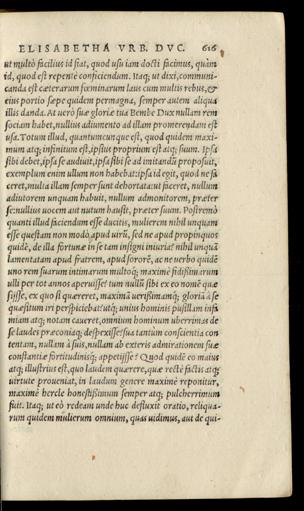 ELISABETHA VRB. DVC. 616
ut multò facilius id fiat, quod usu iam docti facimus, quàm
id, quod est repentè conficiendum. Itaq; ut dixi, communi-
canda est cæterarum fœminarum laus cum multis rebus, &
eius portio sæpe quidem permagna, semper autem aliqua
illis danda. At uerò suæ gloriæ tua Bembe Dux nullam rem
sociam habet, nullius adiumento ad illam promerendam est
usa. Totum illud, quantuncunque est, quod quidem maxi-
mum atq; infinitum est, ipsius proprium est atq; suum. Ipsa
sibi debet, ipsa se audiuit, ipsa sibi se ad imitandũ proposuit,
exemplum enim ullum non habebat: ipsa id egit, quod ne fa
ceret, multa illam semper sunt dehortata: ut faceret, nullum
adiutorem unquam habuit, nullum admonitorem, præter
se: nullius uocem aut nutum hausit, præter suum. Postremò
quanti illud faciendum esse ducitis, mulierem nihil unquam
esse questam non modò apud uirũ, sed ne apud propinquos
quidē, de illa fortunæ in se tam insigni iniuria? nihil unquā
lamentatam apud fratrem, apud sororē, ac ne uerbo quidē
uno rem suarum intimarum multoq; maximè fidissimarum
ulli per tot annos aperuisse? tum nullũ sibi ex eo nomē quæ
sisse, ex quo si quæreret, maximā uerissimamq; gloriā à se
quæsitum iri perspiciebat? utq; unius hominis pusillam infi
miam atq; notam caueret, omnium hominum uberrimas de
se laudes præconiaq; despexisse? sua tantùm conscientia con
tentam, nullam à suis, nullam ab exteris admirationem suæ
constantiæ fortitudinisq; appetisse? Quod quidē eo maius
atq; illustrius est, quo laudem quærere, quæ rectè factis atq;
uirtute proueniat, in laudum genere maximè reponitur,
maximè hercle honestissimum semper atq; pulcherrimum
fuit. Itaq; ut eò redeam unde huc defluxit oratio, reliqua-
rum quidem mulierum omnium, quas uidimus, aut de qui-